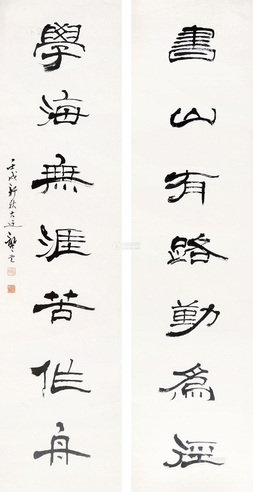 書山有路勤為徑
學海無涯苦作舟
壬戌新秋